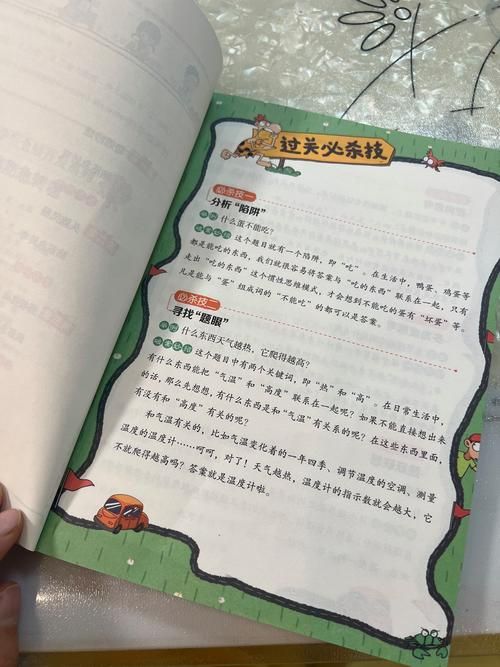 过关必杀技
必杀技一
分析“陷阱”
举例 什么蛋不能吃?
这个题目就有一个陷阱,即“吃”。在生活中,鸭蛋、鸡蛋等
都是能吃的东西,我们就很容易将答案与“吃的东西”联系在一起,只有
走出“吃的东西”这个惯性思维模式,才会想到不能吃的蛋有“坏蛋”等。
凡是能与“蛋”组成词的“不能吃”的都可以是答案。
必杀技二
寻找“题眼”
举例 什么东西天气越热,它爬得越高?
这个题目中有两个关键词,即“热”和“高”。在日常生活中,
有什么东西能把“气温”和“高度”联系在一起呢?如果不能直接想出来
的话,那么先想想,有什么东西是和“气温”有关系的呢?在这些东西里面,
有没有和“高度”有关的呢?
和气温有关的,比如气温变化着的一年四季、调节温度的空调、测量
温度的温度计……呵呵,对了!天气越热,温度计的指示数就会越大,它
不就爬得越高吗?答案就是温度计啦。